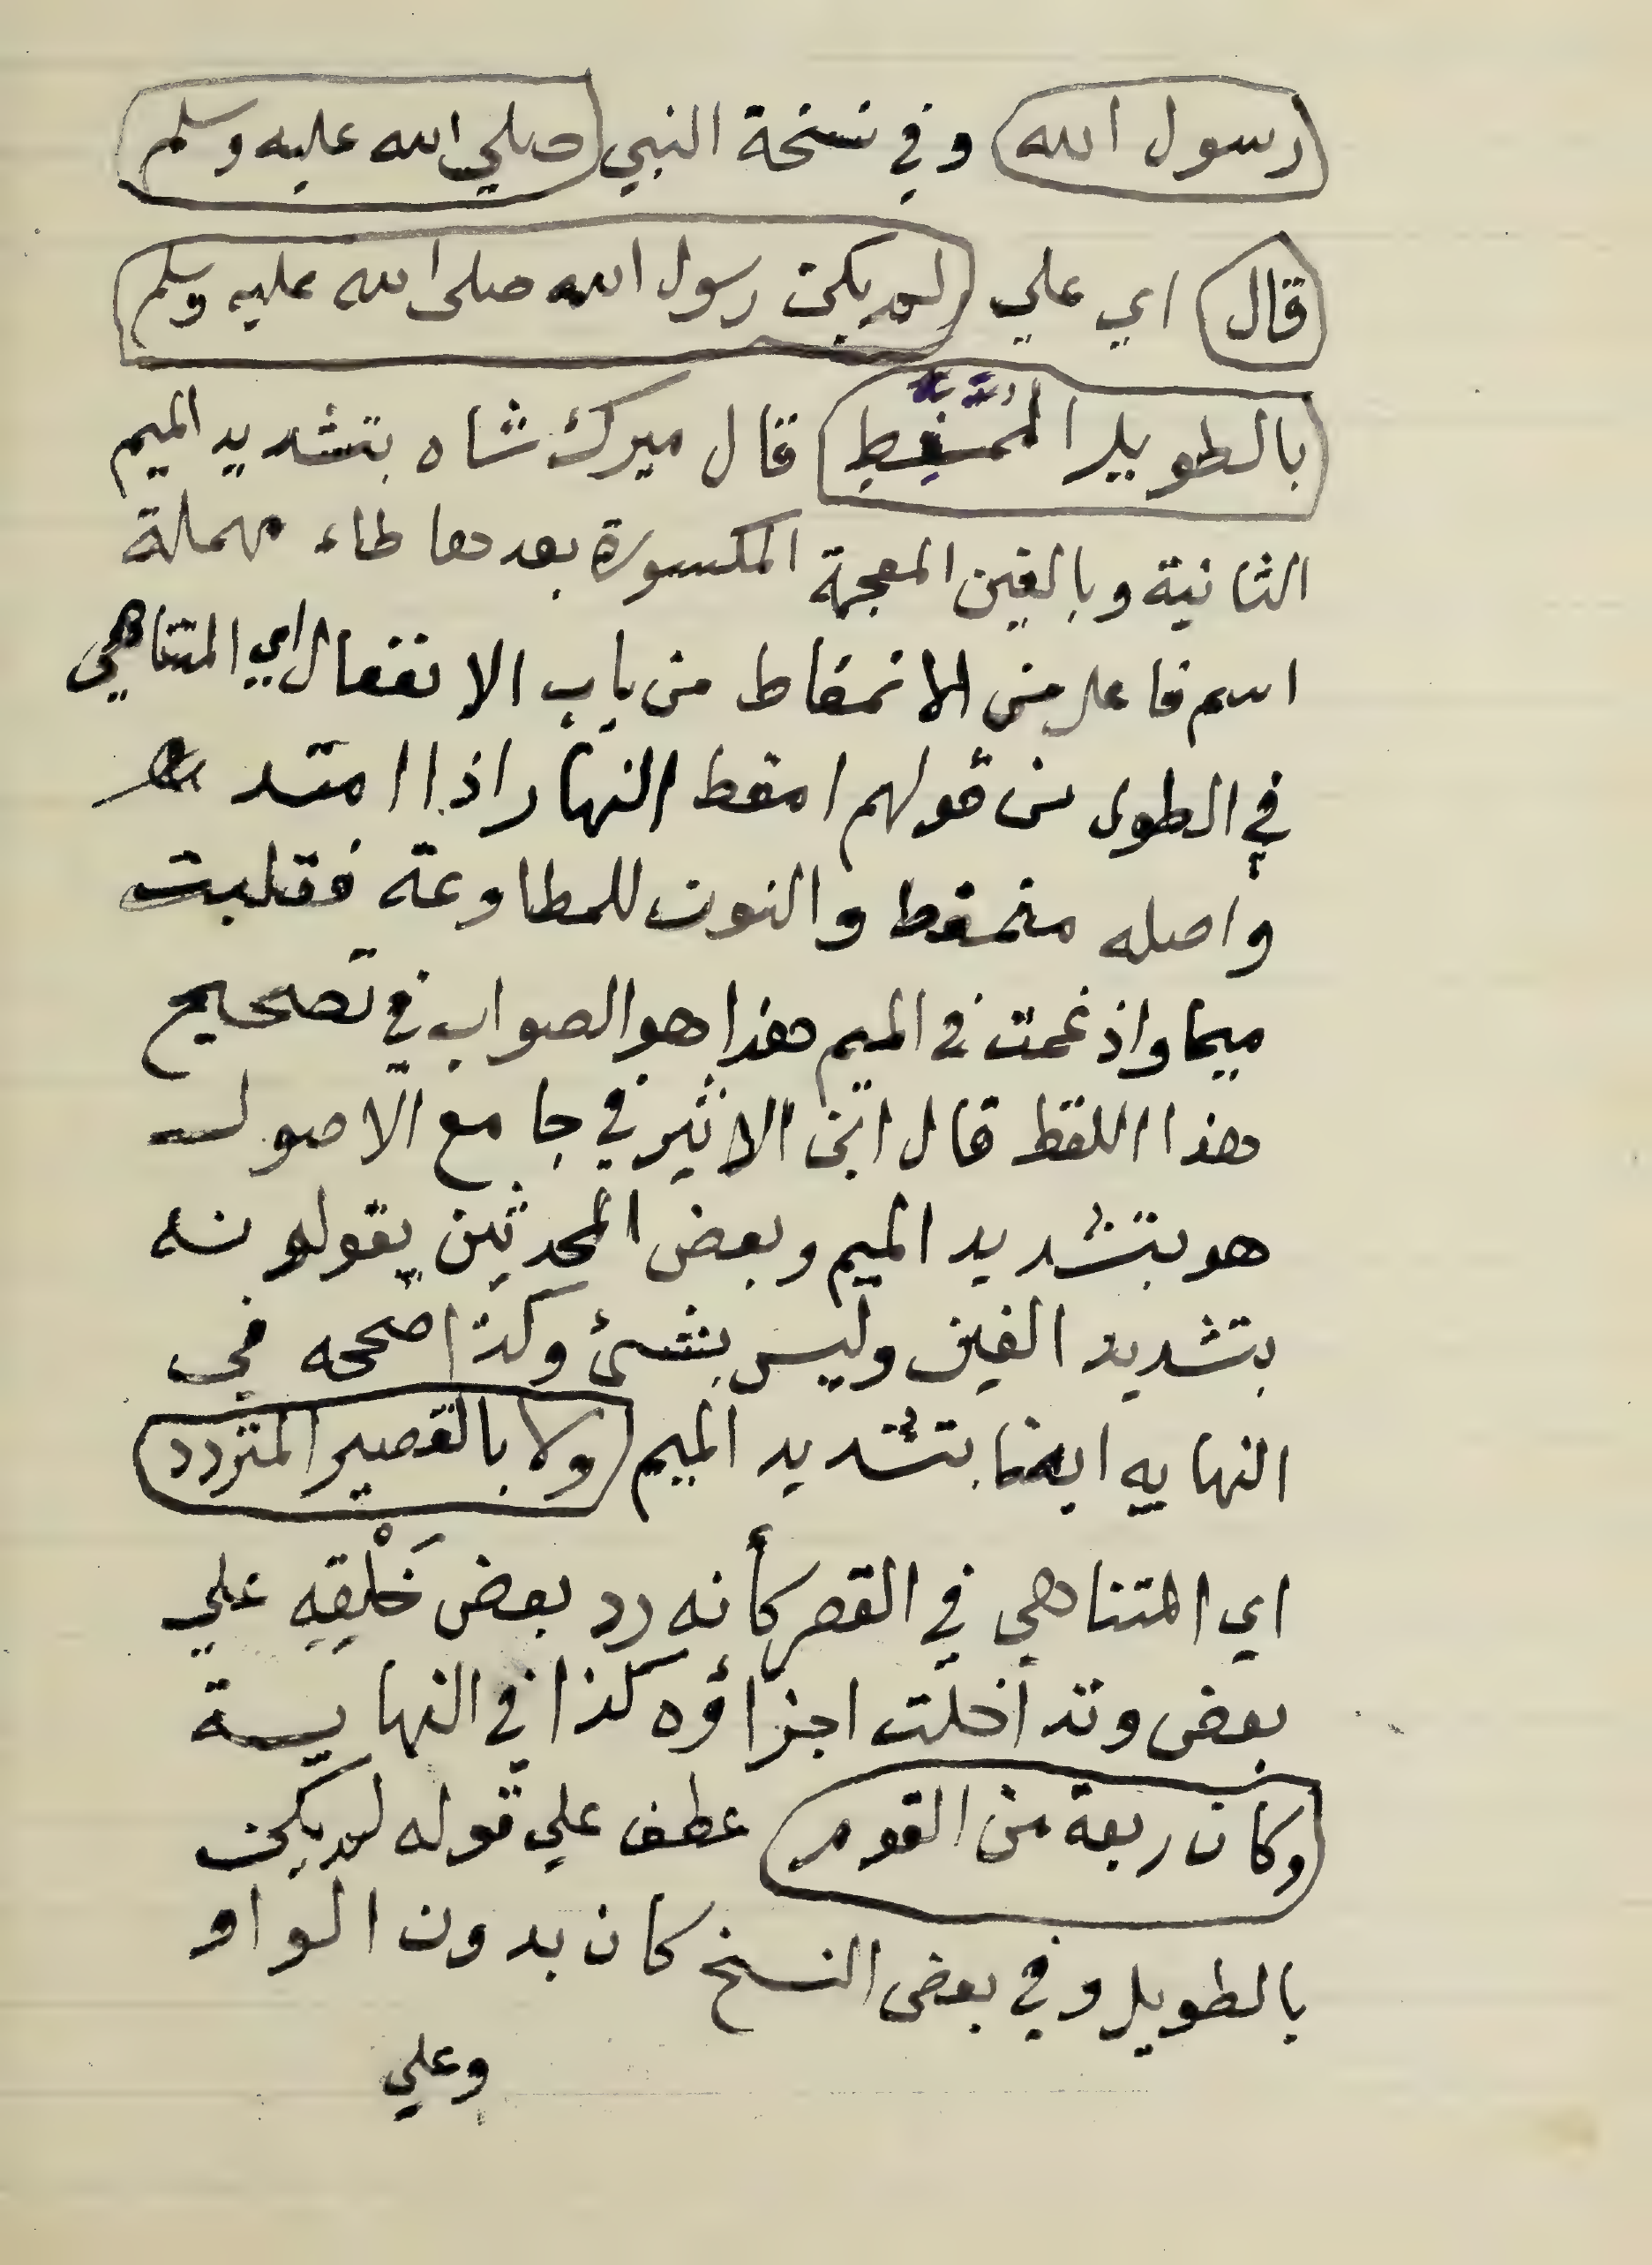 رسول الله وفي نسخة النبي صلي الله عليه وسلم
قال اي علي لم يكن رسول الله صلى الله عليه وسلم
بالطويل الممَّغِطِ قال ميرك شاه بتشديد الميم
الثانية وبالغين المعجمة المكسورة بعدها طاء مهملة
اسم فاعل من الانمغاط من باب الانفعال اي المتناهي
في الطول من قولهم امغط النهار اذا امتد
وأصله منمغط والنون للمطاوعة فقلبت
ميما واذغمت في الميم هذا هو الصواب في تصحيح
هذا اللفظ قال ابن الاثير في جامع الاصول
هو بتشديد الميم وبعض المحدثين يقولونه
بتشديد الغين وليس بشئ وكذا صححه في
النهايه ايضا بتشديد الميم ولا بالقصير المتردد
اي المتناهي في القصر كأنه رد بعض خَلْقِهِ علي
بعض وتداخلت اجزاؤه كذا في النهاية
وكان ربعة من القوم عطف علي قوله لم يكن
بالطويل وفي بعض النسخ كان بدون الواو
وعلي